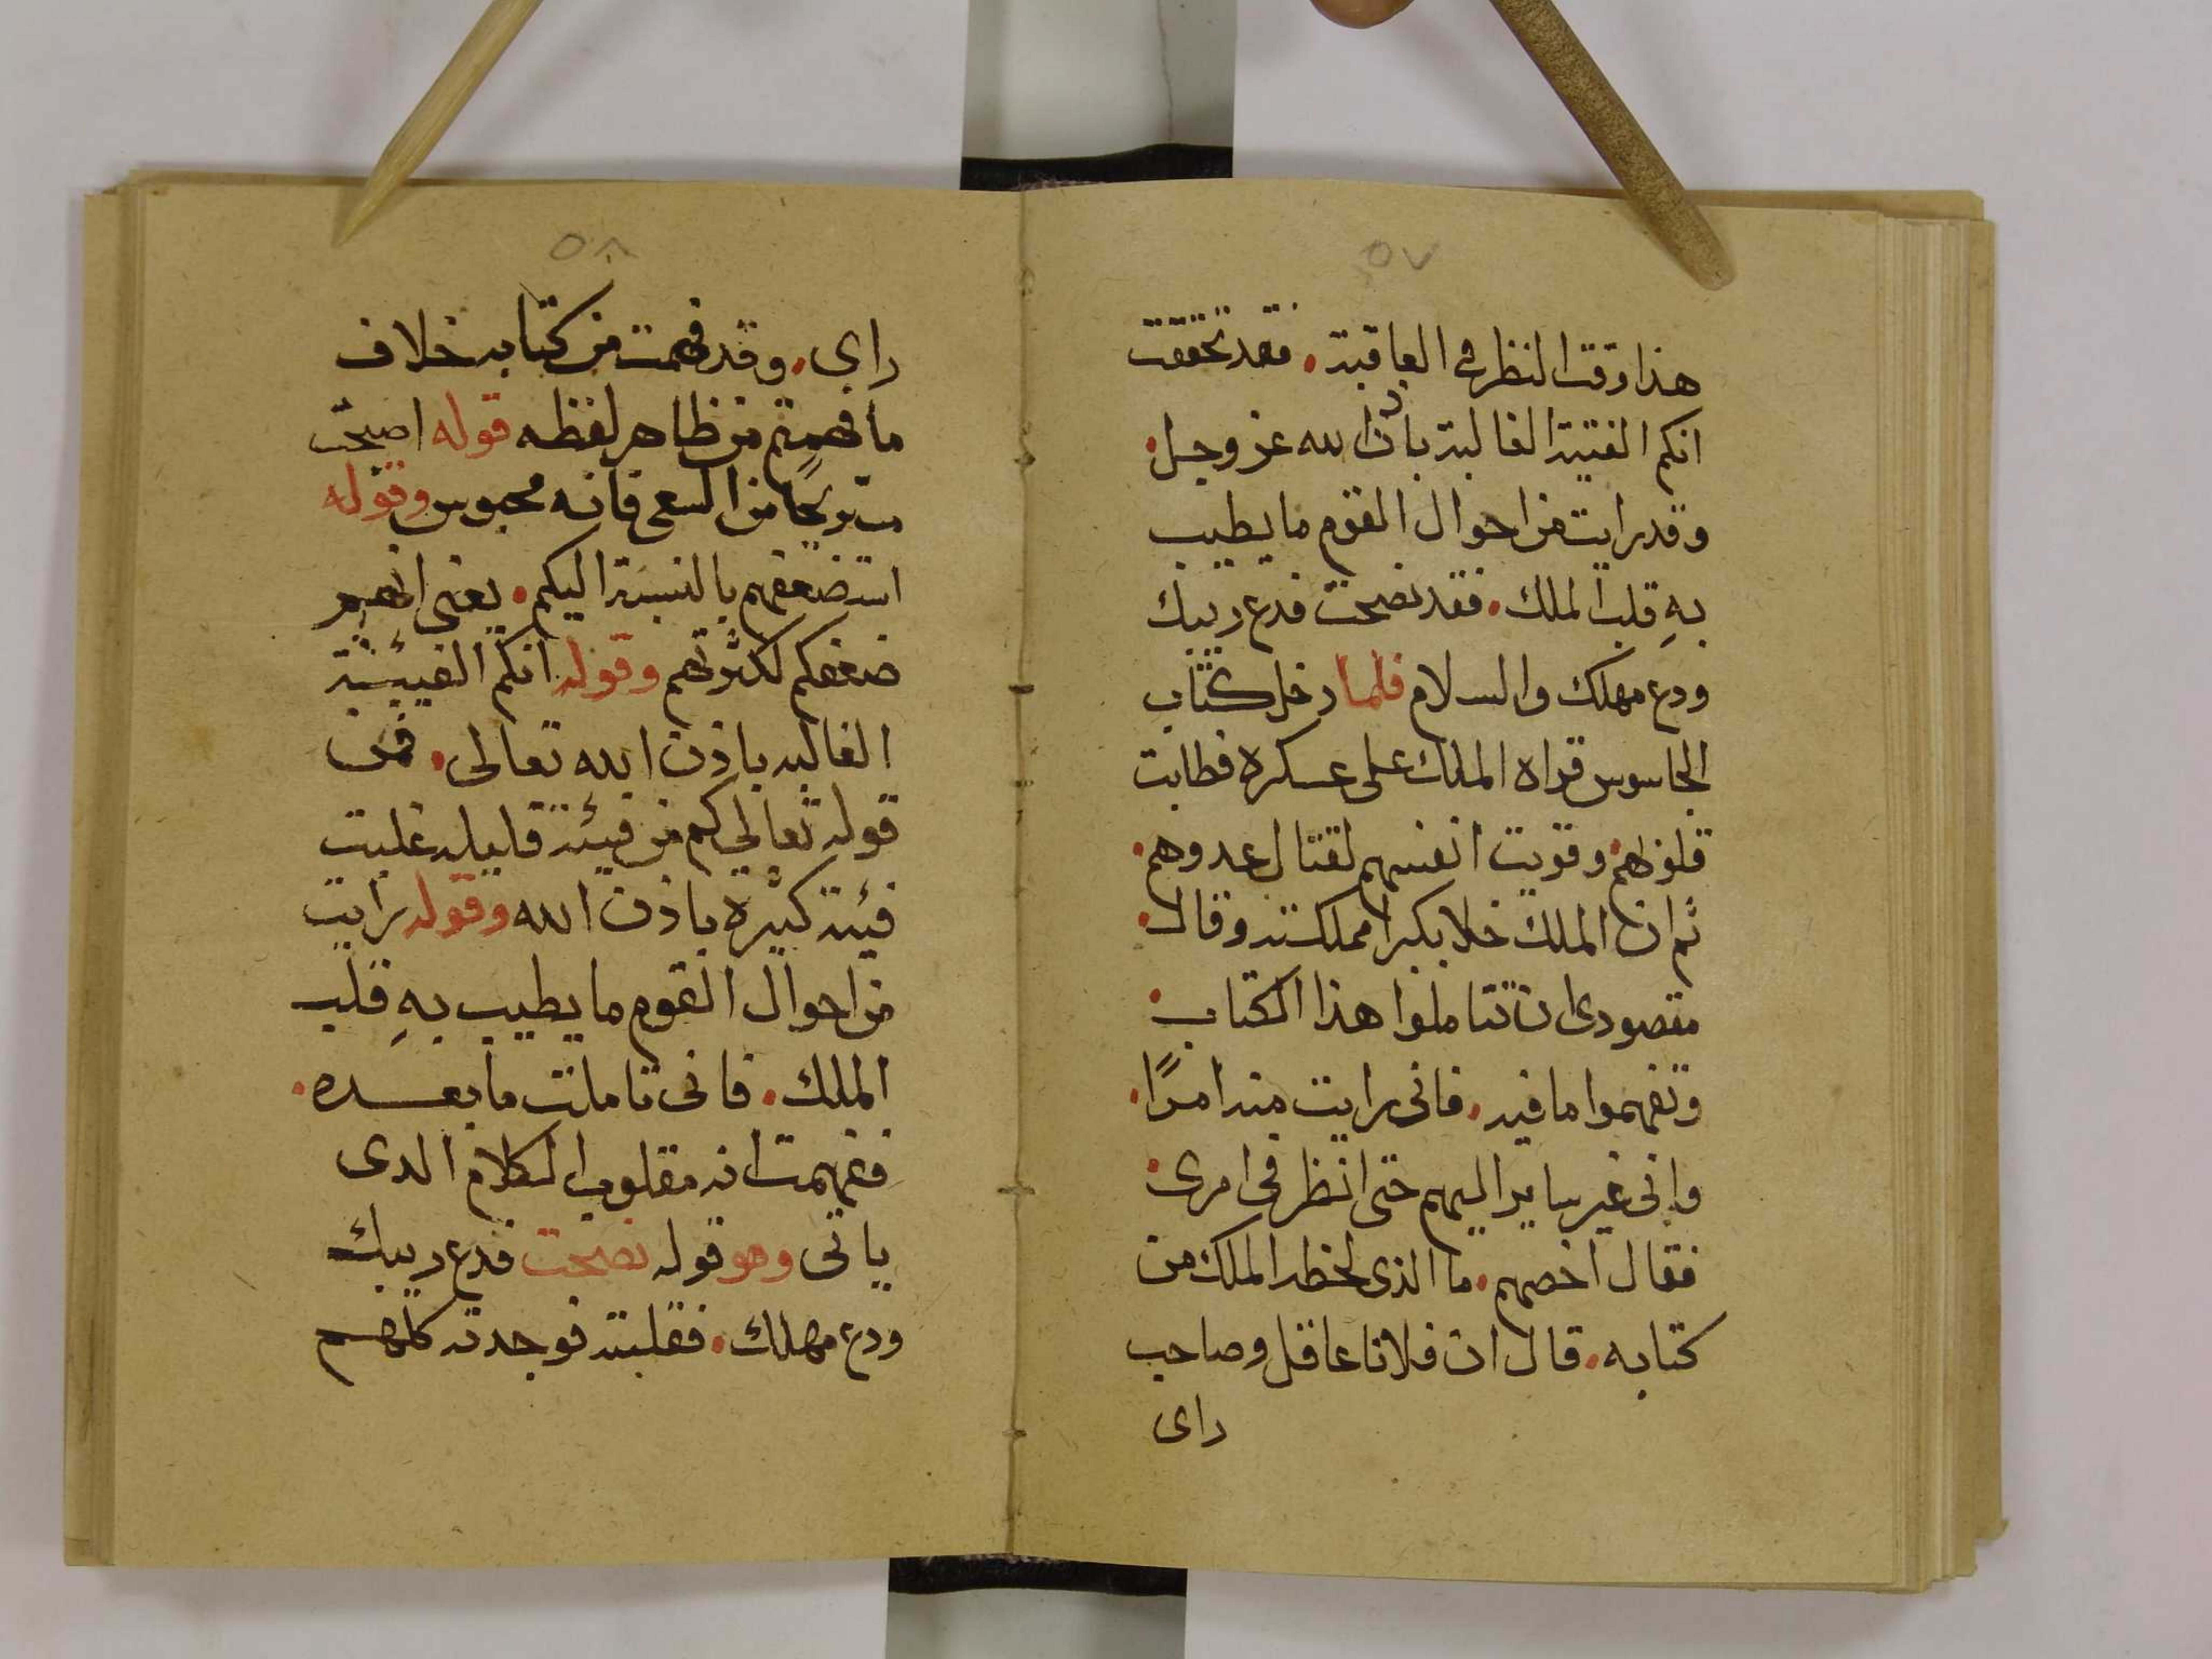 ٥٧
هذا وقت النظر في العاقبة. فقد تحققت
انكم الفتية الغالبة باذن الله عز وجل.
وقد رايت من احوال القوم ما يطيب
بهِ قلب الملك. فقد نصحت فدع ريبك
ودع مهلك والسلام فلما دخل كتاب
الجاسوس قراه الملك على عسكره فطابت
قلوبهم. وقويت انفسهم لقتال عدوهم.
ثم ان الملك خلا بكبرا مملكته وقال.
مقصودى ان تتاملوا هذا الكتاب.
وتفهموا ما فيه. فانى رايت منه امرًا.
وانى غير ساير اليهم حتى انظر فى امرى.
فقال اخصهم. ما الذى لخطر الملك من
كتابه. قال ان فلانا عاقل وصاحب
راى
٥٨
راى. وقد فهمت من كتابه خلاف
ما فهمتم من ظاهر لفظه قوله اصبحت
مستريحًا من السعى فانه محبوس وقوله
استضعفهم بالنسبة اليكم. يعنى انهم
ضعفكم لكثرتهم وقوله انكم الفيئة
الغالبه باذن الله تعالى. فمن
قوله تعالى كم من فيئة قليله غلبت
فيئة كبيره باذن الله وقوله رايت
من احوال القوم ما يطيب بهِ قلب
الملك. فانى تاملت ما بعده.
ففهمت انه مقلوب الكلام الدى
ياتى وهو قوله نصحت فدع ريبك
ودع مهلك. فقلبته فوجدته كلهم